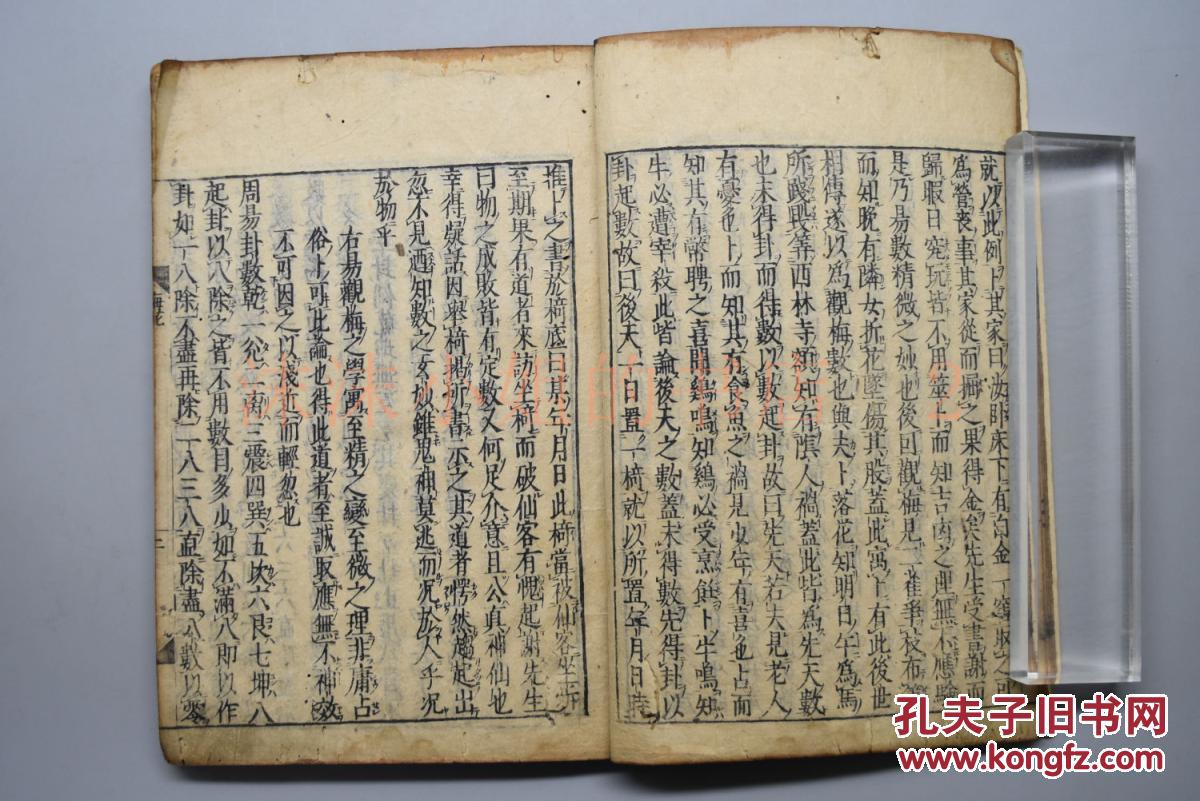 就以此例卜其家曰汝卧床下有白金
為營喪事其家從而掘之果得金矣先生受書謝
歸暇日究玩皆不用筮卜而知吉凶之理無不應
是乃易數精微之妙也後因觀梅見二雀爭枝布
而知晚有隣女折花墜傷其股蓋此寓卜有此後世
相傳遂以為觀梅數也與夫卜落花知明日午為馬
所踐與筭西林寺額知有陰人禍蓋此皆為先天數
也未得卦而得數以數起卦故曰先天若夫見老人
有憂色卜而知其有食魚之禍見少年有喜色占而
知其有幣聘之喜聞鷄鳴知鷄必受烹飪卜牛鳴知
牛必遭宰殺此皆論後天之數蓋未得數先得卦以
卦起數故曰後天一日置一椅就以所置年月日時
推卜之書於椅底曰某年月日此椅當被仙客坐下
至期果有道者來訪坐椅而破仙客有愧起謝先生
曰物之成敗皆有定數又何足介意且公真神仙也
幸得娛話因舉椅揭所書示之其道者愕然趨起出
忽不見迺知數之玄妙雖鬼神莫逃而況於人乎況
於物乎
右易觀梅之學寓至精之變至微之理非庸占
俗卜可此論也得此道者至誠取應無不神效
不可因之以淺近而輕忽也
周易卦數乾一兌二离三震四巽五坎六艮七坤八
起卦以八除之皆不用數目多少如不滿八即以作
卦如一八除不盡再除二八三八直除盡八數以零
梅花
二
孔夫子旧书网
www.kongfz.com